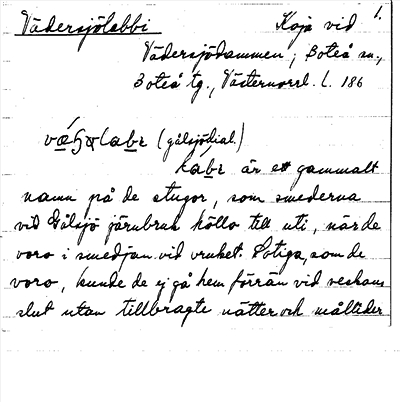 1.
Vädersjölabbi Koja vid
Vädersjödammen, Boteå sn.,
Boteå tg., Västernorrl. L. 186
(gålsjödial.)
är ett gammalt
namn på de stugor, som smederna
vid Gålsjö järnbruk höllo till uti, när de
voro i smedjan vid bruket. Sotiga, som de
voro, kunde de ej gå hem förrän vid veckans
slut utan tillbragte nätter och måltider